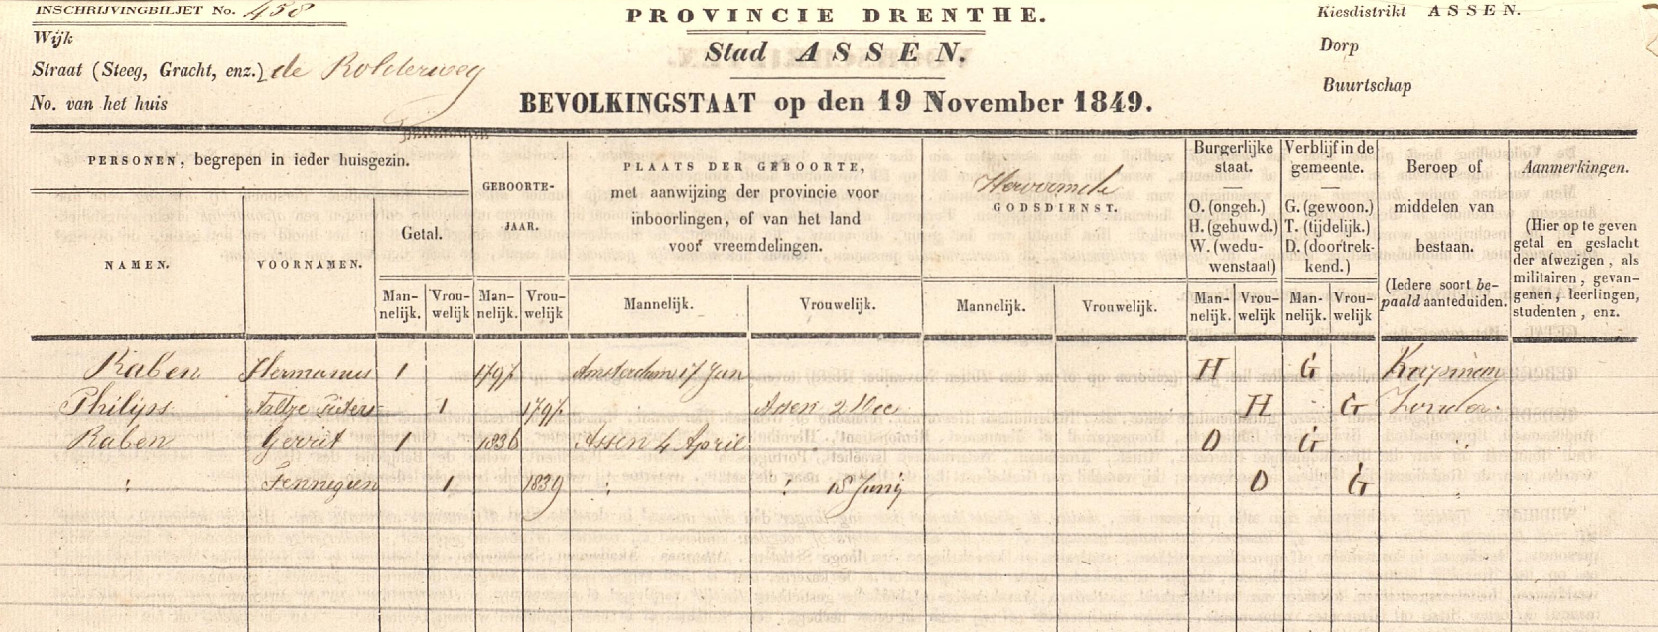 INSCHRIJVINGBILJET No. 458
PROVINCIE DRENTHE.
Kiesdistrikt ASSEN.
Wijk
Stad ASSEN.
Dorp
Straat (Steeg, Gracht, enz.) de Rolderweg
Buurtschap
No. van het huis
BEVOLKINGSTAAT op den 19 November 1849.
PERSONEN, begrepen in ieder huisgezin.
NAMEN.
VOORNAMEN.
Getal.
Man-
nelijk.
Vrou-
welijk
GEBOORTE-
JAAR.
Man-
nelijk.
Vrou-
welijk
PLAATS DER GEBOORTE,
met aanwijzing der provincie voor
inboorlingen, of van het land
voor vreemdelingen.
Mannelijk.
Vrouwelijk.
Hervormde
GODSDIENST.
Mannelijk.
Vrouwelijk.
Burgerlijke
staat.
O. (ongeh.)
H. (gehuwd.)
W. (wedu-
wenstaat)
Man-
nelijk.
Vrou-
welijk
Verblijf in de
gemeente.
G. (gewoon.)
T. (tijdelijk.)
D. (doortrek-
kend.)
Man-
nelijk.
Vrou-
welijk
Beroep of
middelen van
bestaan.
(Iedere soort be-
paald aanteduiden.
Aanmerkingen.
(Hier op te geven
getal en geslacht
der afwezigen, als
militairen, gevan-
genen, leerlingen,
studenten, enz.
Raben Hermannus 1 1797 Amsterdam 17 Jan H G
Philips 1 1797 Assen 2 Dec H G Zonder
Raben Gerrit 1 1836 Assen 4 April O G "
" Fennegien 1 1839 " " 18 Junij O G "